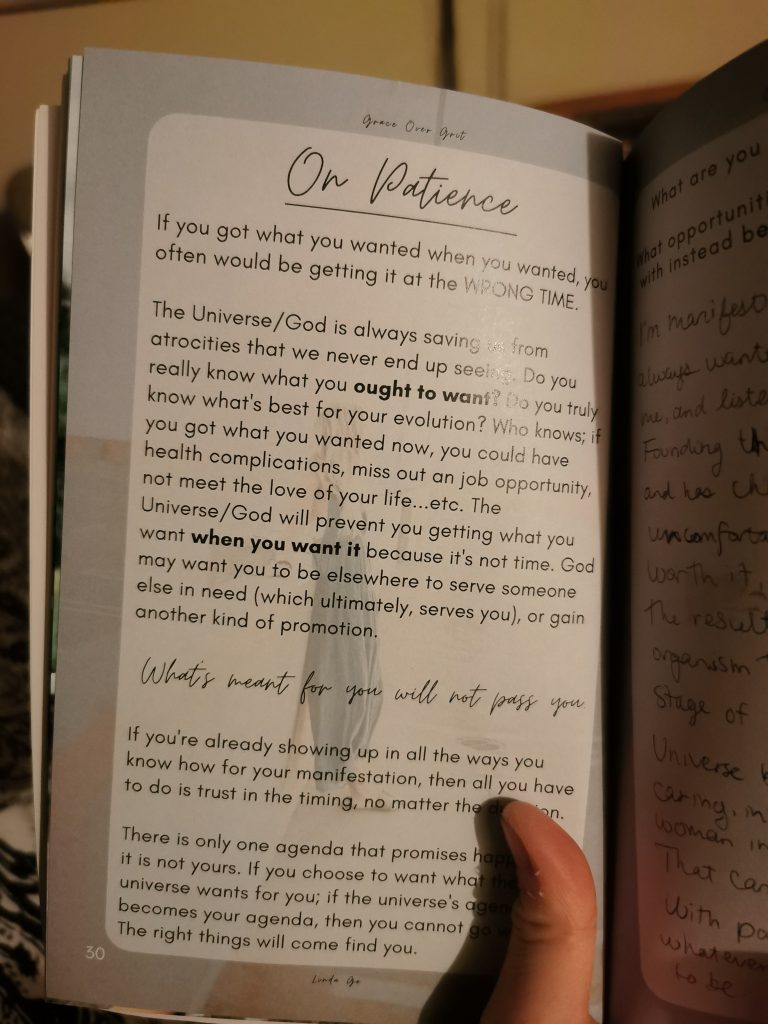 Grace Over Grit
On Patience
If you got what you wanted when you wanted, you
often would be getting it at the WRONG TIME.
The Universe/God is always saving us from
atrocities that we never end up seeing. Do you
really know what you ought to want? Do you truly
know what's best for your evolution? Who knows; if
you got what you wanted now, you could have
health complications, miss out an job opportunity,
not meet the love of your life...etc. The
Universe/God will prevent you getting what you
want when you want it because it's not time. God
may want you to be elsewhere to serve someone
else in need (which ultimately, serves you), or gain
another kind of promotion.
What's meant for you will not pass you
If you're already showing up in all the ways you
know how for your manifestation, then all you have
to do is trust in the timing, no matter the
There is only one agenda that promises
it is not yours. If you choose to want what
universe wants for you; if the universe's
becomes your agenda, then you cannot go
The right things will come find you.
30
Linda Ge
What are you
What opportuniti
with instead be
I'm manifest
always wante
me, and liste
Founding th
and has ch
uncomforta
worth it
the result
organism
Stage of
Universe
caring, in
woman in
That can
With pa
whatever
to be